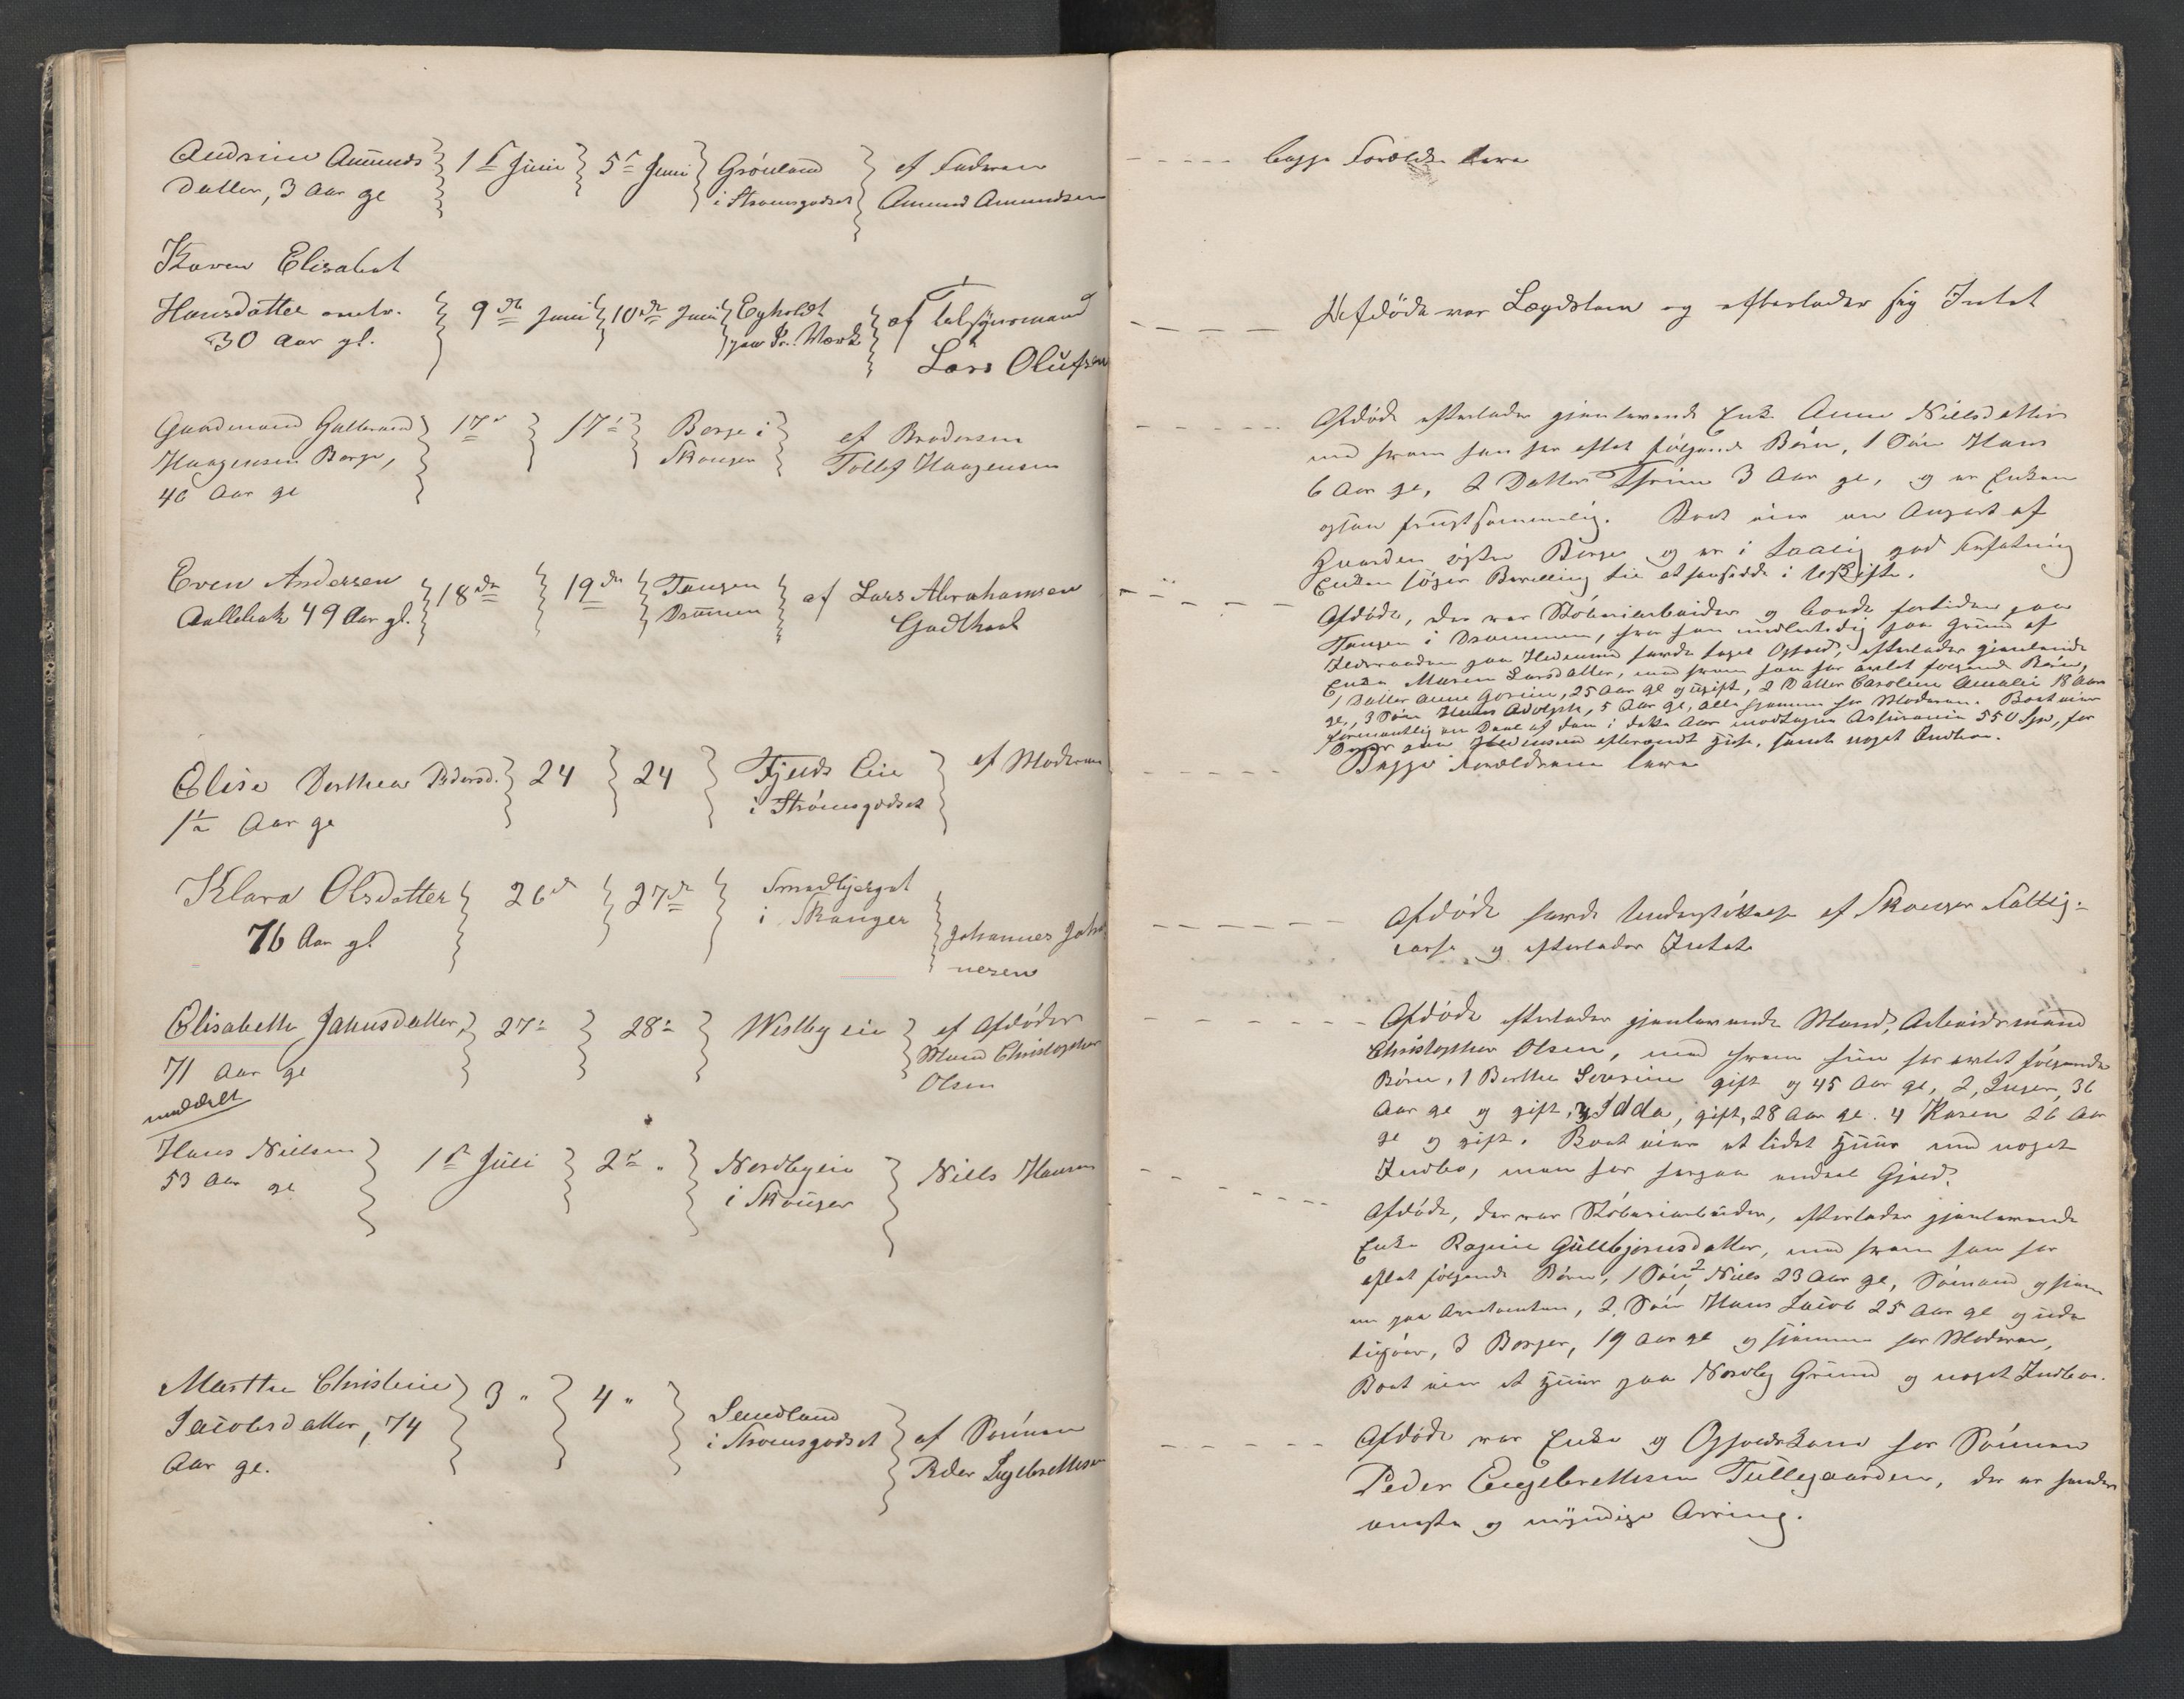 Andrine Amunds
Datter, 3 Aar gl
1ste Juni
5te Juni
Grönland
i Strømsgodset
af Faderen
Amund Amundsen
begge Forældre leve
Karen Elisabet
Hansdatter
30 Aar gl.
9de Juni
10de Juni
Eyholdt
paa Værk
af Tilsynsmand
Lars Olufsen
Afdöde var Lægdslem og efterlader sig Intet
Gudmund Gulbrand
Haagensen Berge,
40 Aar gl
17de
17de
Berge i
Skouger
af Broderen
Tollef Haagensen
Afdöde efterlader gjenlevende Enke Anne Nielsdatter
med hvem han har aflet følgende Börn, 1 Sön Hans
6 Aar gl, 2 Datter Thrine 3 Aar gl, og er Enken
ogsaa frugtsommelig. Boet eier en Anpart af
Gaarden östre Berge og er i taalig god Forfatning
Enken söger Bevilling til at hensidde i uskifte.
Even Andersen
Aallebak 49 Aar gl.
18de
19de
Tangen
Drammen
af Lars Abrahamsen
Godthaab
Afdöde, der var Stöberiarbeider og boede fortiden paa
Tangen i Drammen, hvor han midlertidig paa Grund af
Ildebranden paa Hedensrud havde taget Ophold, efterlader gjenlevende
Enke Maren Larsdatter, med hvem han har avlet følgende Börn,
1 Datter Anne Gorine, 25 Aar gl ugift, 2 Datter Caroline Amalie 18 Aar
gl, 3 Sön Hans Adolph, 5 Aar gl, alle hjemme hos Moderen. Boet eier
formentlig en Deel af den i dette Aar modtagne Assurance 550 Spd, for
paa Hedensrud afbrændt Huse, samt noget Indbo.
Elise Dorthea Pedersd.
1½ Aar gl
24
24
Fjelds Eie
i Strömsgodset
af Moderen
Begge Forældrene leve
Klara Olsdatter
76 Aar gl
26de
27de
Smedbjerget
i Skouger
Johannes Joha
nesen
Afdöde havde Understöttelse af Skouger Fattig-
casse og efterlader Intet
Elisabeth Jahnsdatter,
71 Aar gl
27de
28de
Westby eie
af Afdödes
Mand Christopher
Olsen
Afdöde efterlader gjenlevende Mand, Arbeidsmand
Christopher Olsen, med hvem hun har avlet følgende
Börn, 1 Berthe Severine gift og 45 Aar gl, 2, Inger, 36
Aar gl og gift, 3 Idda, gift, 28 Aar gl. 4 Karen 26 Aar
gl og gift. Boet eier et lidet Huus med noget
Indbo, men har herpaa endeel Gjæld.
meddelt
Hans Nielsen
53 Aar gl
1ste Juli
2de "
Nordbyeie
i Skouger
Niels Hansen
Afdöde, der var Stöberiarbeider, efterlader gjenlevende
Enke Ragine Gulbjörnsdatter, med hvem han har
aflet følgende Börn, 1 Sön 2 Niels 23 Aar gl, Sömand og hjem
me paa, 2, Sön Hans Jacob 25 Aar gl og ude
, 3 Borger, 19 Aar gl og hjemme hos Moderen,
Boet eier et Huus paa Nordby Grund og noget Indbo.
Marthe Christine
Jacobsdatter, 74
Aar gl.
3 "
4 "
Sundland
i Strömsgodset
af Sönnen
Peder Engebrethsen
Afdöde var Enke og Opholdskone hos Sönnen
Peder Engebrethsen Tullegaarden, der er hendes
eneste og myndige Arving.